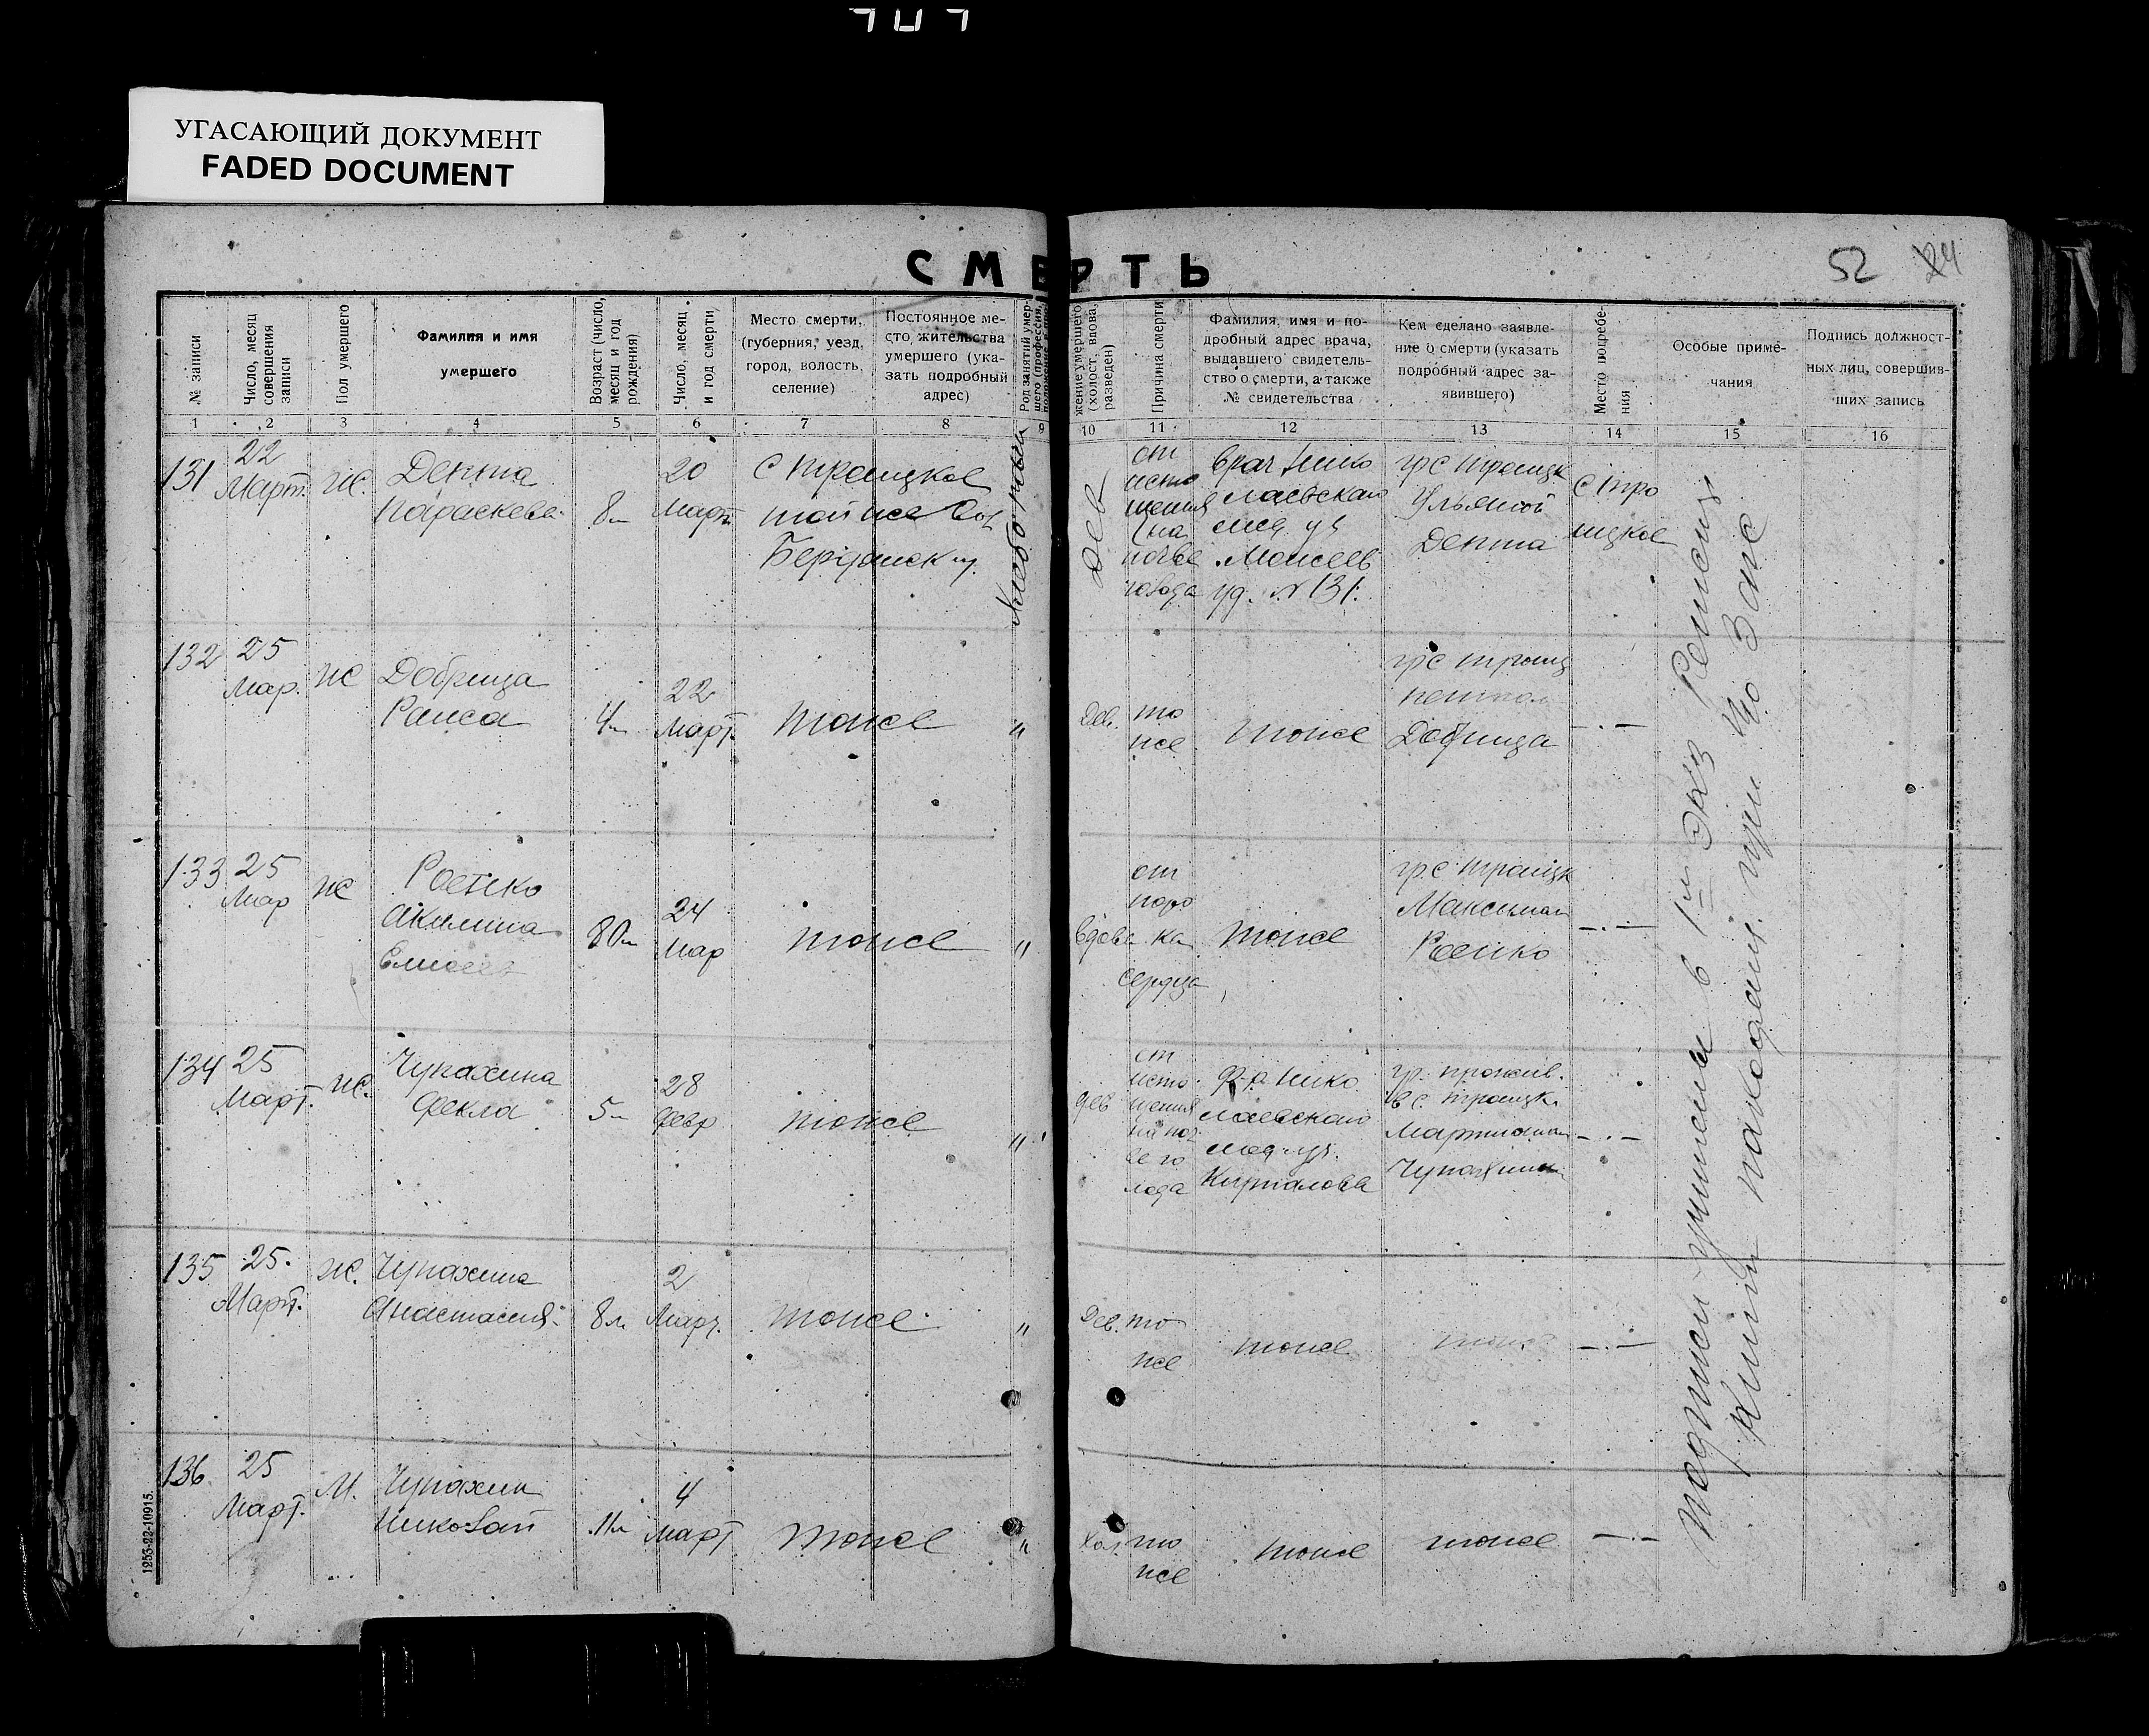 УГАСАЮЩИЙ ДОКУМЕНТ
FADED DOCUMENT
СМЕРТЬ
52 24
№ записи
Число, месяц совершения записи
Пол умершего
Фамилия и имя умершего
Возраст (число, месяц и год рождения)
Число, месяц и год смерти
Место смерти, (губерния, уезд, город, волость, селение)
Постоянное место жительства умершего (указать подробный адрес)
Род занятий умершего (профессия,
жение умершего (холост, вдова, разведен)
Причина смерти
Фамилия, имя и подробный адрес врача, выдавшего свидетельство о смерти, а также № свидетельства
Кем сделано заявление о смерти (указать подробный адрес заявившего)
Место погребения
Особые примечания
Подпись должностных лиц, совершивших запись
1 2 3 4 5 6 7 8 9 10 11 12 13 14 15 16
131
22
Март.
ж.
Дента
Параскева
8 л
20
Март
С Троицкое
той же вол
Бердянск у.
Хлебороб
Дев
от
исто
щения
(на
почве
голода
врач Нико
лаевского
мед уч
Моисеев
уд. № 131.
гр с Троицк
Ульяной
Дента
с Тро
ицкое
132
25
Мар.
ж
Добрица
Раиса
4 л
22
Март.
тоже
"
Дев.
то
же
тоже
гр с Троиц
Добрица
—·—
133
25
Мар
ж
Роенко
Акилина
80 л
24
Мар
тоже
"
Вдова
от
поро
ка
сердца
тоже
гр с Троицк
Максимом
Роенко
—·—
134
25
Март.
ж.
Чупахина
Фекла
5 л
28
Февр
тоже
"
дев
от
исто
щения
на поч
ве го
лода
ф-р Нико
лаевского
мед. уч.
гр. прожив.
в с. Троицк.
Чупахиным
—·—
135
25.
Март.
ж.
Чупахина
Анастасия
8 л.
2
Март.
тоже
"
Дев.
то
же
тоже
тоже
—·—
136
25
Март.
М.
Чупахин
Николай
11 л
4
март
тоже
"
Хол.
то
же
тоже
тоже
—·—
Подписи учинены в 1м экз
книги находящ. при
1253-22-10915.